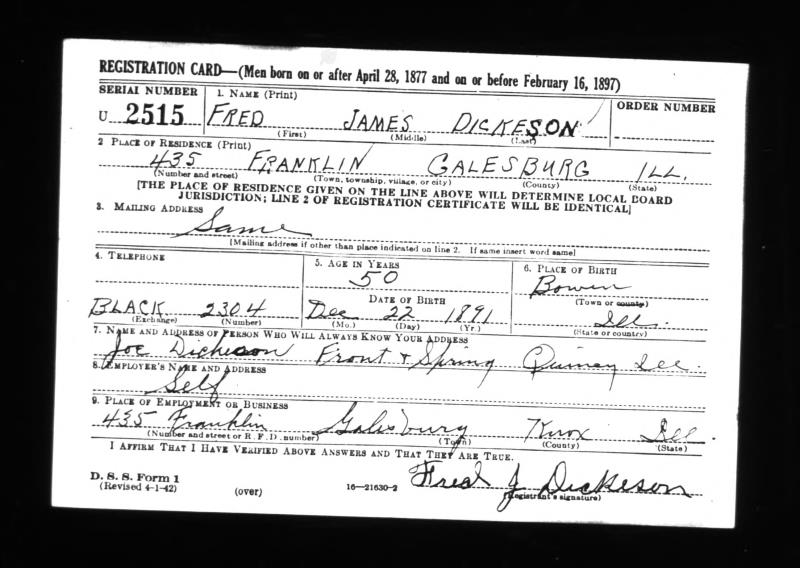 REGISTRATION CARD—(Men born on or after April 28, 1877 and on or before February 16, 1897)
SERIAL NUMBER 1. NAME (Print) ORDER NUMBER
U 2515 FRED JAMES DICKESON
(First) (Middle) (Last)
2 PLACE OF RESIDENCE (Print)
435 FRANKLIN GALESBURG ILL.
(Number and street) (Town, township, village, or city) (County) (State)
[THE PLACE OF RESIDENCE GIVEN ON THE LINE ABOVE WILL DETERMINE LOCAL BOARD
JURISDICTION; LINE 2 OF REGISTRATION CERTIFICATE WILL BE IDENTICAL]
3. MAILING ADDRESS
Same
[Mailing address if other than place indicated on line 2. If same insert word same]
4. TELEPHONE 5. AGE IN YEARS 6. PLACE OF BIRTH
50 Bowen
DATE OF BIRTH (Town or county)
BLACK 2304 Dec 22 1891 Ill.
(Exchange) (Number) (Mo.) (Day) (Yr.) (State or country)
7. NAME AND ADDRESS OF PERSON WHO WILL ALWAYS KNOW YOUR ADDRESS
Joe Dickeson Front + Spring Quincy Ill.
8. EMPLOYER'S NAME AND ADDRESS
Self
9. PLACE OF EMPLOYMENT OR BUSINESS
435 Franklin Galesburg Knox Ill.
(Number and street or R. F. D. number) (Town) (County) (State)
I AFFIRM THAT I HAVE VERIFIED ABOVE ANSWERS AND THAT THEY ARE TRUE.
D. S. S. Form 1
(Revised 4-1-42) (over) 16—21630-2 Fred J Dickeson
(Registrant's signature)